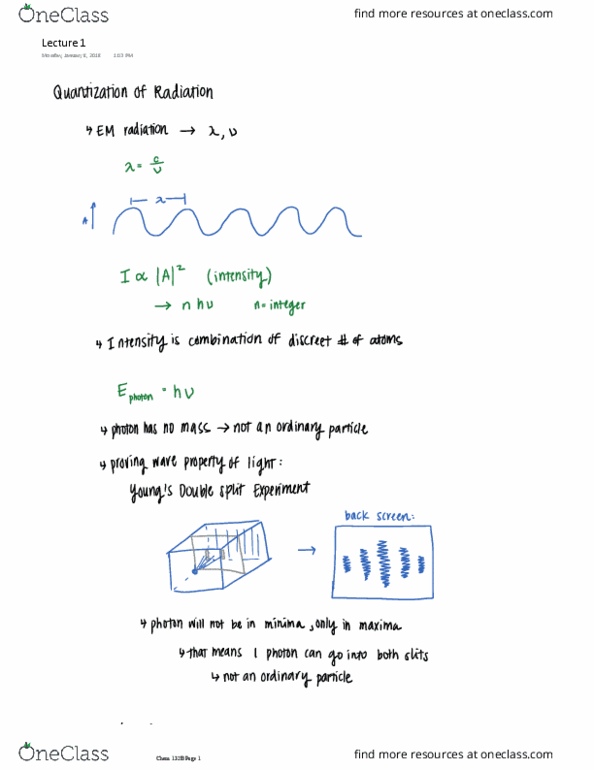 OneClass
find more resources at oneclass.com
Lecture 1
Monday, January 8, 2018 1:03 PM
Quantization of Radiation
↳ EM radiation → λ, ν
λ = c/ν
λ
A
I ∝ |A|² (intensity)
→ n hν n = integer
↳ Intensity is combination of discreet # of atoms
E photon = hν
↳ photon has no mass → not an ordinary particle
↳ proving wave property of light:
Young's Double split Experiment
back screen:
→
↳ photon will not be in minima, only in maxima
↳ that means 1 photon can go into both slits
↳ not an ordinary particle
OneClass
Page 1
find more resources at oneclass.com